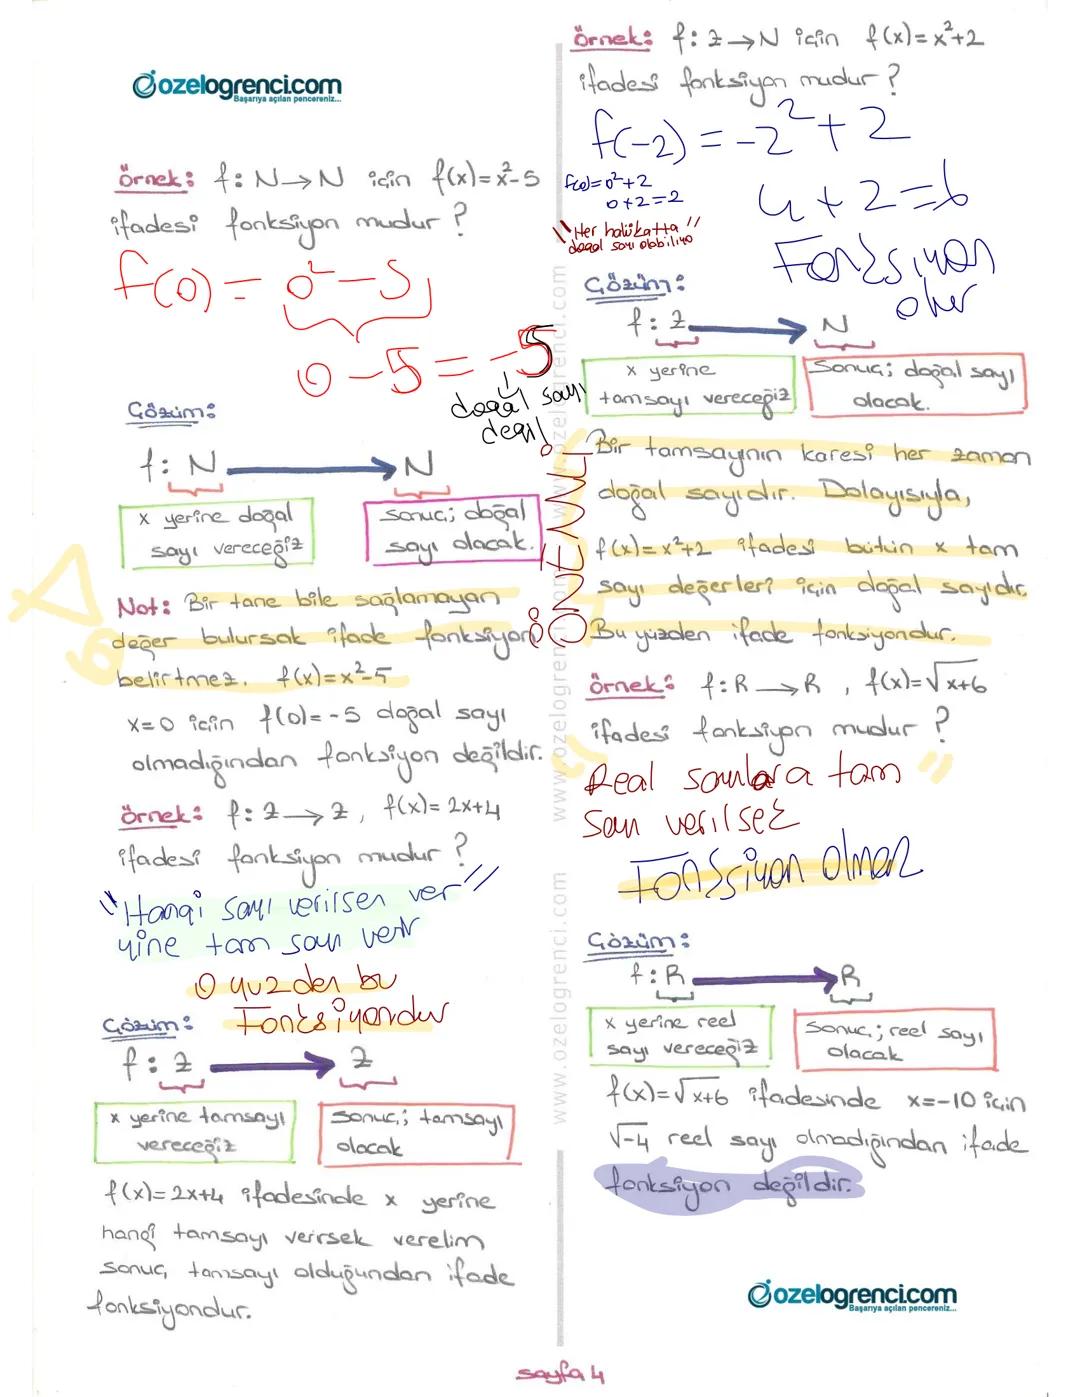 ozelogrenci.com
Başarıya açılan pencereniz...
Örnek: f: N→N için f(x)=x²-5
ifadesi fonksiyon mudur?
f(0) = 0² - 5
0 - 5 = -5
doğal sayı
değil
Çözüm:
f: N → N
x yerine doğal
sayı vereceğiz
sonuç; doğal
sayı olacak.
Not: Bir tane bile sağlamayan
değer bulursak ifade fonksiyon
belirtmez. f(x)=x²-5
x=0 için f(0)=-5 doğal sayı
olmadığından fonksiyon değildir.
Örnek: f: Z→Z, f(x)=2x+4
ifadesi fonksiyon mudur?
"Hangi sayı verilsen ver"
yine tam sayı verir
O yüzden bu
Fonksiyondur
Çözüm:
f: Z → Z
x yerine tamsayı
vereceğiz
sonuç; tamsayı
olacak
f(x)=2x+4 ifadesinde x yerine
hangi tamsayı verirsek verelim
sonuç tamsayı olduğundan ifade
fonksiyondur.
Örnek: f: Z→N için f(x)=x²+2
ifadesi fonksiyon mudur?
f(-2) = -2² + 2
4 + 2 = 6
f(0)=0²+2
0+2=2
Fonksiyon
olur
Çözüm:
f: Z → N
x yerine
tamsayı vereceğiz
Sonuç; doğal sayı
olacak.
ÖNEMLİ
Bir tamsayının karesi her zaman
doğal sayıdır. Dolayısıyla,
f(x)=x²+2 ifadesi bütün x tam
sayı değerleri için doğal sayıdır.
Bu yüzden ifade fonksiyondur.
Örnek: f: R→R, f(x)=√x+6
ifadesi fonksiyon mudur?
Real sayılara tam
sayı verilsek
Fonksiyon olmaz
Çözüm:
f: R → R
x yerine reel
sayı vereceğiz
Sonuç; reel sayı
olacak
f(x)=√x+6 ifadesinde x=-10 için
√-4 reel sayı olmadığından ifade
fonksiyon değildir.
www.ozelogrenci.com
www.ozelogrenci.com
ozelogrenci.com
Başarıya açılan pencereniz...
sayfa 4